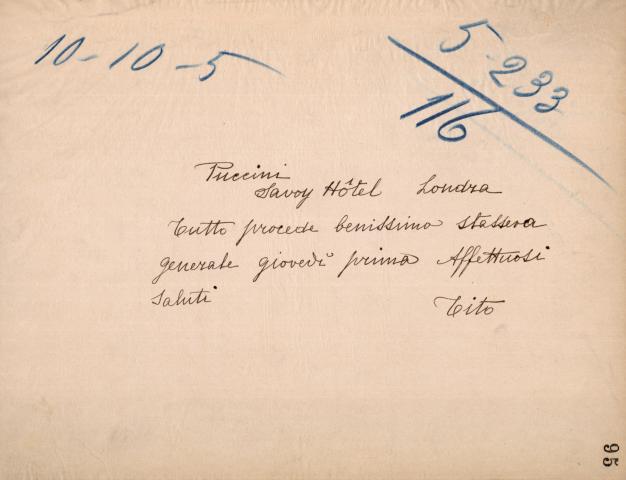 10-10-5
5-233
116
Puccini
Savoy Hôtel Londra
Tutto procede benissimo stassera
generale giovedì prima Affettuosi
saluti Tito
95